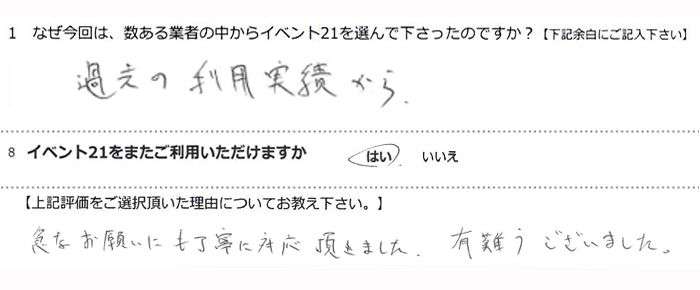 1 なぜ今回は、数ある業者の中からイベント21を選んで下さったのですか？【下記余白にご記入下さい】
過去の利用実績から.
8 イベント21をまたご利用いただけますか はい いいえ
【上記評価をご選択頂いた理由についてお教え下さい。】
急なお願いにも丁寧に対応頂きました. 有難うございました。